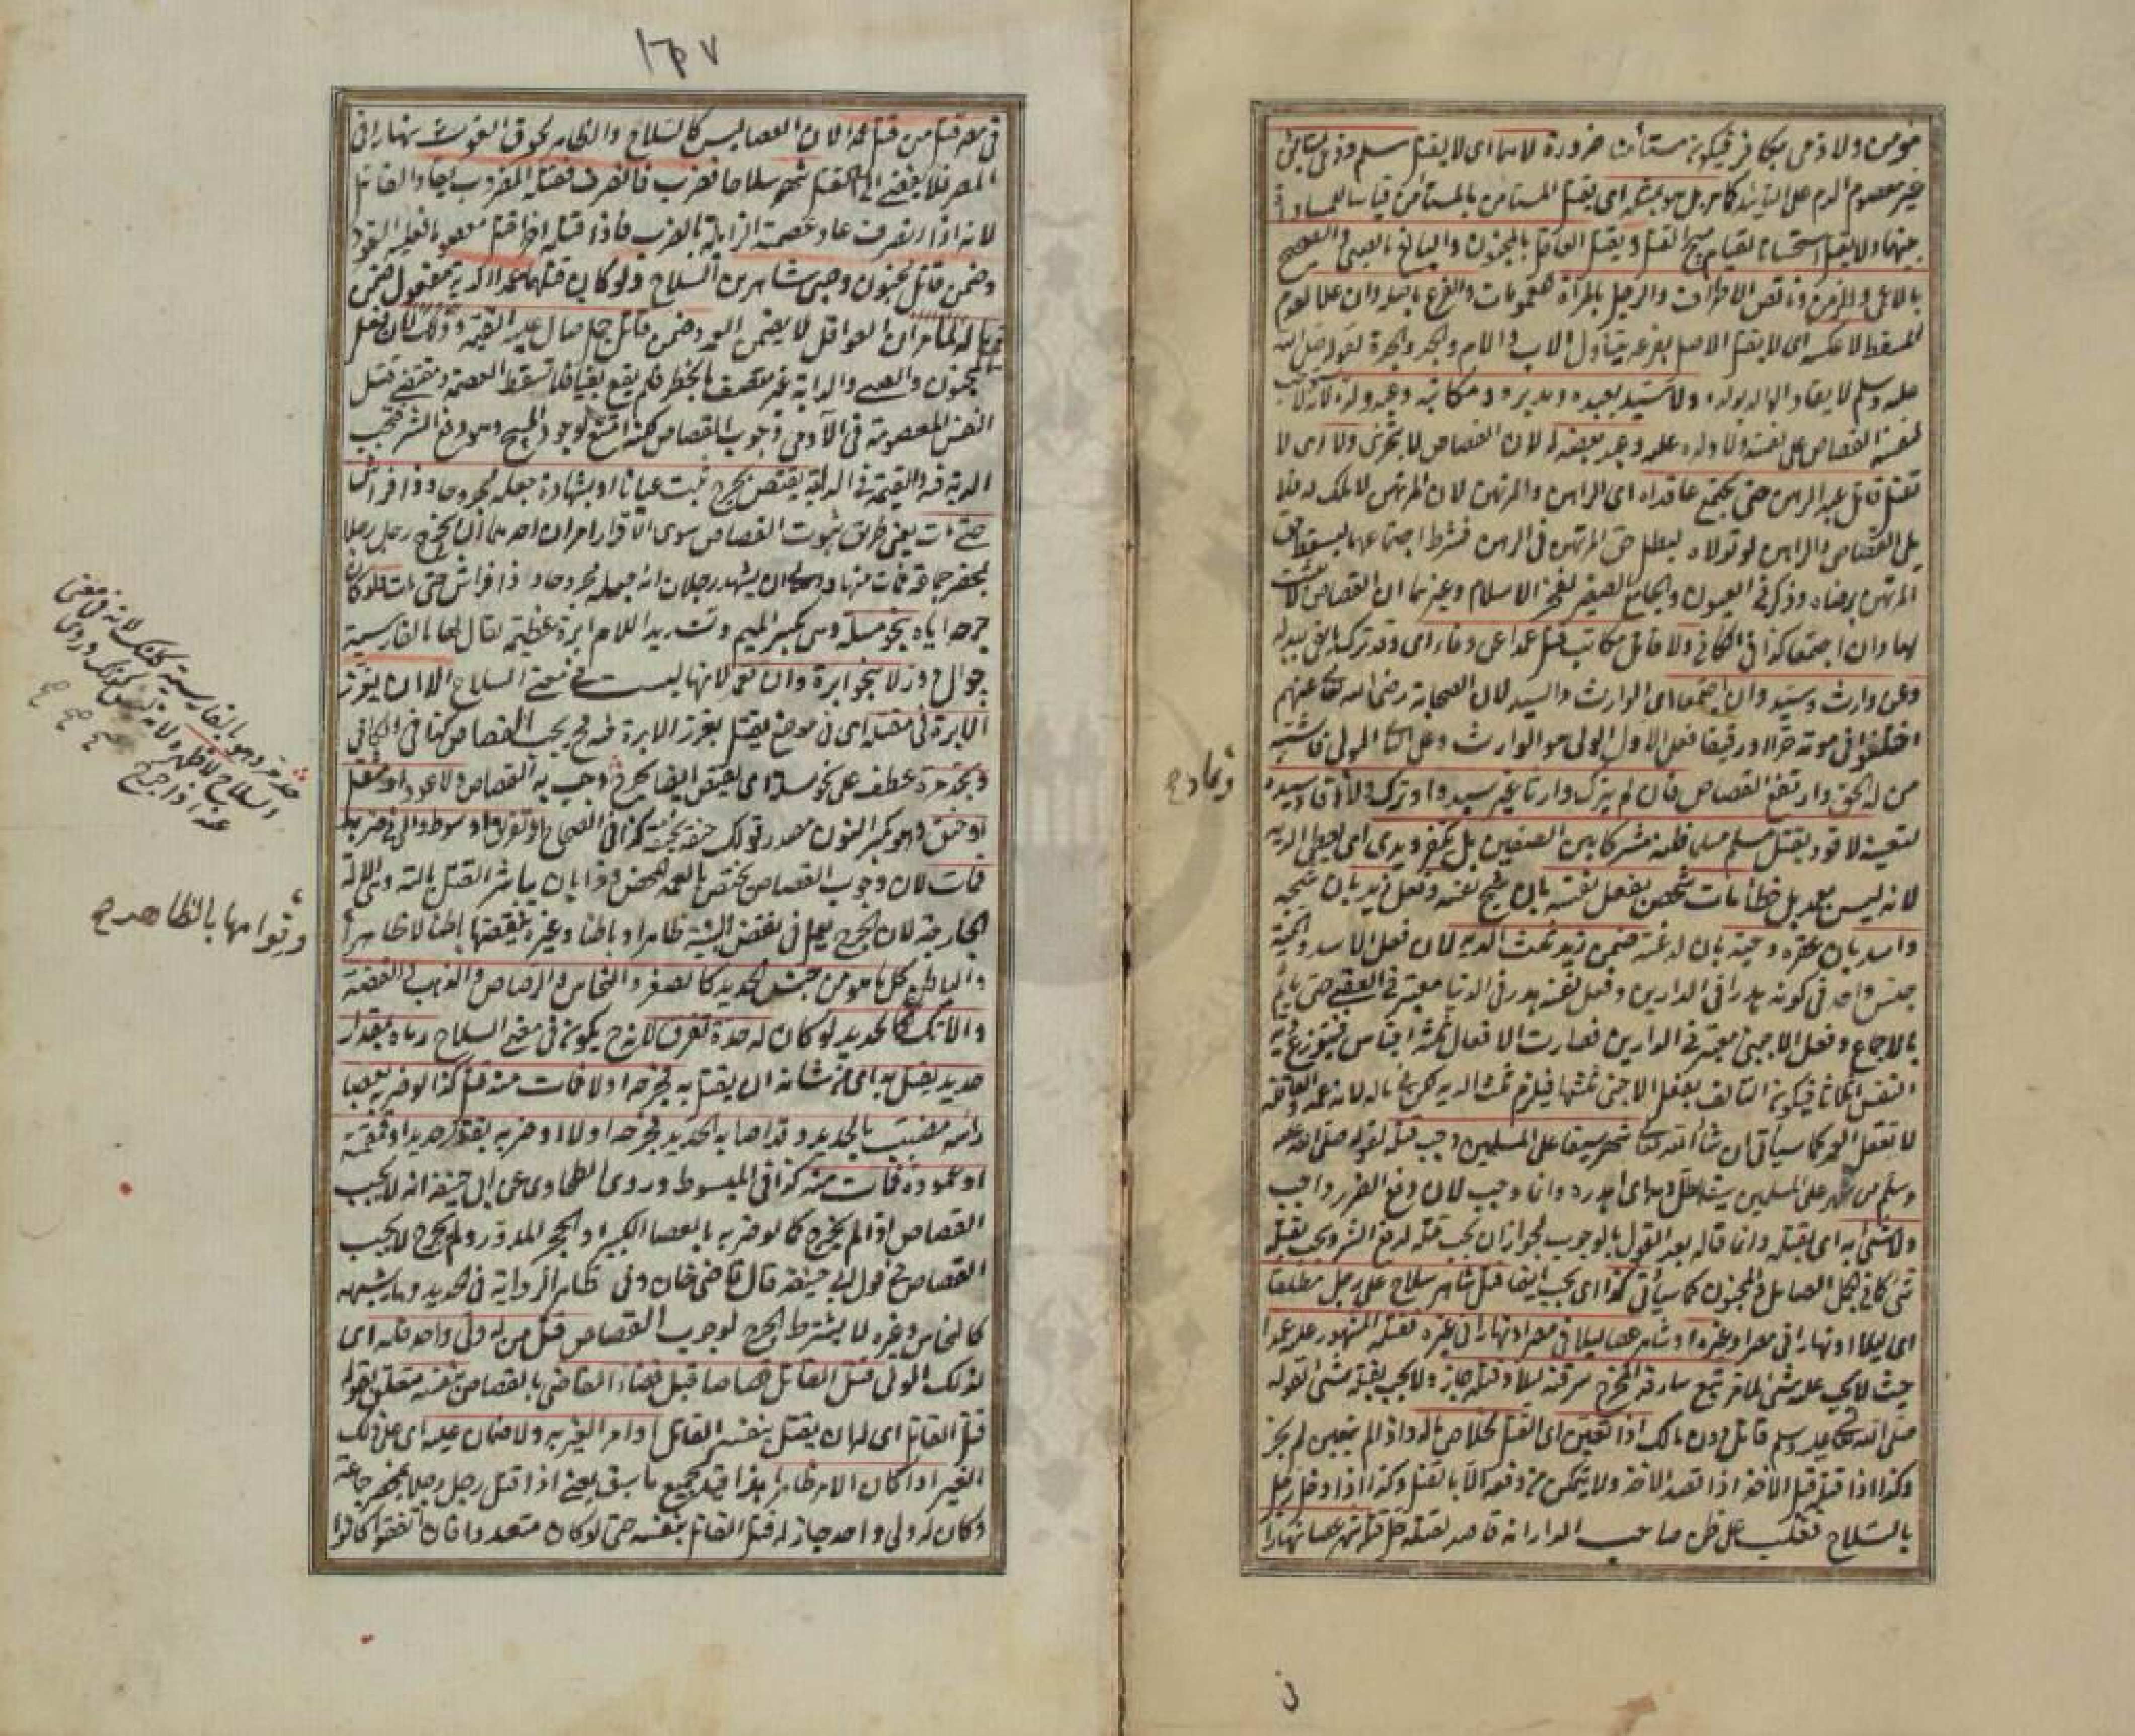 مؤمن ولا ذمي بكافر فيكون مستأمنا ضرورة لا هما اى لا يقتل مسلم وذمى بمستأمن
غير معصوم الدم على التأبيد كامر بل هو بمثله اى يقتل المستأمن بالمستأمن قياسا للمساواة
بينهما ولا يقتل استحسانا لقيام مبيح القتل ويقتل العاقل بالمجنون والبالغ بالصبى والصحيح
بالاعمى والزمن وناقص الاطراف والرجل بالمرأة للعمومات والفرع باصله وان علا لعدم
المسقط لا عكسه اى لا يقتل الاصل بفرعه يتناول الاب والام والجد والجدة لقوله صلى الله
عليه وسلم لا يقاد الوالد بولده ولا سيد بعبده ومدبره ومكاتبه وعبد ولده لانه لا يجب
لنفسه القصاص على نفسه ولا ولده عليه وعبد بعضه له لان القصاص لا يتجزى ولا اى لا
يقتل قاتل عبد الرهن حتى يجتمع عاقداه اى الراهن والمرتهن لان المرتهن لا ملك له فلا
يلى القصاص والراهن لو تولاه لبطل حق المرتهن فى الرهن فشرط اجتماعهما ليسقط حق
المرتهن برضاه وذكر فى العيون والجامع الصغير لفخر الاسلام وغيرهما ان القصاص لا يثبت
لهما وان اجتمعا كذا فى الكافى ولا قاتل مكاتب قتل عمدا عن وفاء اى وقد ترك ما يفى ببدله
وعن وارث وسيد وان اجتمعا اى الوارث والسيد لان الصحابة رضى الله تعالى عنهم
اختلفوا فى موته حرا او رقيقا فعلى الاول الولى هو الوارث وعلى الثانى المولى فاشتبه
من له الحق وارتفع القصاص فان لم يترك وارثا غير سيده او ترك ولا وفاء اقاد سيده
لتعينه لا قود بقتل مسلم مسلما ظنه مشركا بين الصفين بل يكفر ويدى اى يعطى الدية
لانه ليس بعمد بل خطأ مات شخص بفعل نفسه بان شج نفسه وفعل زيد بان شجه
واسد بان عقره وحية بان لدغته ضمن زيد ثلث الدية لان فعل الاسد والحية
جنس واحد فى كونه هدرا فى الدارين وفعل نفسه هدر فى الدنيا معتبر فى العقبى حتى يأثم
بالاجماع وفعل الاجنبى معتبر فى الدارين فصارت الافعال ثلثة اجناس فيتوزع دية
النفس اثلاثا فيكون التالف بفعل الاجنبى ثلثها فيلزم ثلث الدية لكن فى ماله لانه عمد والعاقلة
لا تعقل العمد كما سيأتى ان شاء الله تعالى شهر سيفا على المسلمين وجب قتله لقوله صلى الله عليه
وسلم من شهر على المسلمين سيفا فقد اطل دمه اى اهدره وانما وجب لان دفع الضرر واجب
ولا شئ به اى بقتله وانما قاله بعد القول بالوجوب لجواز ان يجب قتله لدفع الشر ويجب بقتله
شئ كما فى الجمل الصائل والمجنون كما سيأتى كذا اى يجب ايضا قتل شاهر سلاح على رجل مطلقا
اى ليلا او نهارا فى مصر او غيره او شاهر عصا ليلا فى مصر او نهارا فى غيره فقتله المشهور عليه عمدا
حيث لا يجب عليه شئ لما مر وتبع سارقه المخرج سرقته ليلا وقتله جاز ولا يجب بقتله شئ لقوله
صلى الله تعالى عليه وسلم قاتل دون مالك اذا تعين اى القتل لخلاص ماله واذا لم يتعين لم يجز
وكذا اذا قتله قبل الاخذ اذا قصد الاخذ ولا يتمكن من دفعه الا بالقتل وكذا اذا دخل رجل
بالسلاح فغلب على ظن صاحب الدار انه قاصد لقتله حل قتله شهر عصا نهارا
وبما دح
١٣٧
فى مصر قتل من قتله عمدا لان العصا ليس كالسلاح والظاهر لحوق الغوث نهارا فى
المصر فلا يفضى الى القتل شهر سلاحا فضرب فانصرف فقتله المضروب يقاد القاتل
لانه اذا انصرف عاد عصمته الزائلة بالضرب فاذا قتله اخر قتل معصوما فعليه القود
وضمن قاتل مجنون وصبى شاهرين السلاح ولو كان قتلهما عمدا الدية مفعول ضمن
فى ماله لما مر ان العواقل لا يضمن العمد وضمن قاتل جمل صال عليه القيمة وذلك لان فعل
المجنون والصبى والدابة غير متصف بالحظر فلم يقع بغيا فلا تسقط العصمة ومقتضى قتل
النفس المعصومة فى الآدمى وجوب القصاص لكنه امتنع لوجود المبيح وهو دفع الشر فتجب
الدية فيه والقيمة فى الدابة يقتص بجرح ثبت عيانا او بشهادة جعله مجروحا وذا فراش
حتى مات يعنى طريق ثبوت القصاص سوى الاقرار امران احدهما ان يجرح رجل رجلا
بمحضر جماعة فمات منها والثانى ان يشهد رجلان انه جعله مجروحا وذا فراش حتى مات فلو كان
جرحه اياه بنحو مسلة وهى بكسر الميم وتشديد اللام ابرة عظيمة يقال لها بالفارسية
جوال دوز لا بنحو ابرة وان تعمد لانها ليست فى معنى السلاح الا ان يغرز
الابرة فى مقتله اى فى موضع يقتل بغرز الابرة فيه فح يجب القصاص كذا فى الكافى
وبحد مر عطف على نحو مسلة اى يقتص ايضا بجرح وجب به القصاص ولا عود او مثقل
او خنق وهو بكسر النون مصدر قولك خنقه يخنقه كذا فى الصحاح او تغريق او سوط والى فى ضربه
فمات لان وجوب القصاص يختص بالعمد المحض وذا بان يباشر القتل بآلته وهى الآلة
الجارحة لان الجرح يعمل فى نقض البنية ظاهرا وباطنا وغيره ينقضها باطنا لا ظاهرا
واعلم ان كل ما هو من جنس الحديد كالصفر والنحاس والرصاص والذهب والفضة
والآنك كالحديد لو كان له حدة تفرق لانه ح يكون فى معنى السلاح رماه بمقدار
حديد يقتل به اى من شانه ان يقتل به فجرحه اولا فمات منه قتل كذا لو ضربه بعصا
رأسه مضبب بالحديد وقد اصابه الحديد فجرحه اولا او ضربه بقدر حديد او قمقمة
او عمود فمات منه كذا فى المبسوط وروى الطحاوى عن ابى حنيفة انه لا يجب
القصاص اذا لم يجرح كما لو ضربه بالعصا الكبير او الحجر المدور ولم يجرح لا يجب
القصاص فى قول ابى حنيفة قال قاضى خان وفى ظاهر الرواية فى الحديد وما يشبهه
كالنحاس وغيره لا يشترط الجرح لوجوب القصاص قتل من له ولى واحد فله اى
لذلك الولى قتل القاتل قصاصا قبل قضاء القاضى بالقصاص بنفسه متعلق بقوله
قتل القاتل اى له ان يقتل بنفسه القاتل او امر الغير به ولا ضمان عليه اى على ذلك
الغير اذا كان الامر ظاهرا هذا قيد لجميع ما سبق يعنى اذا قتل رجل رجلا بمحضر جماعة
وكان له ولى واحد جاز له قتل القاتل بنفسه حتى لو كان متعددا فان اتفقوا كانوا
وقوامها بالظاهر ح